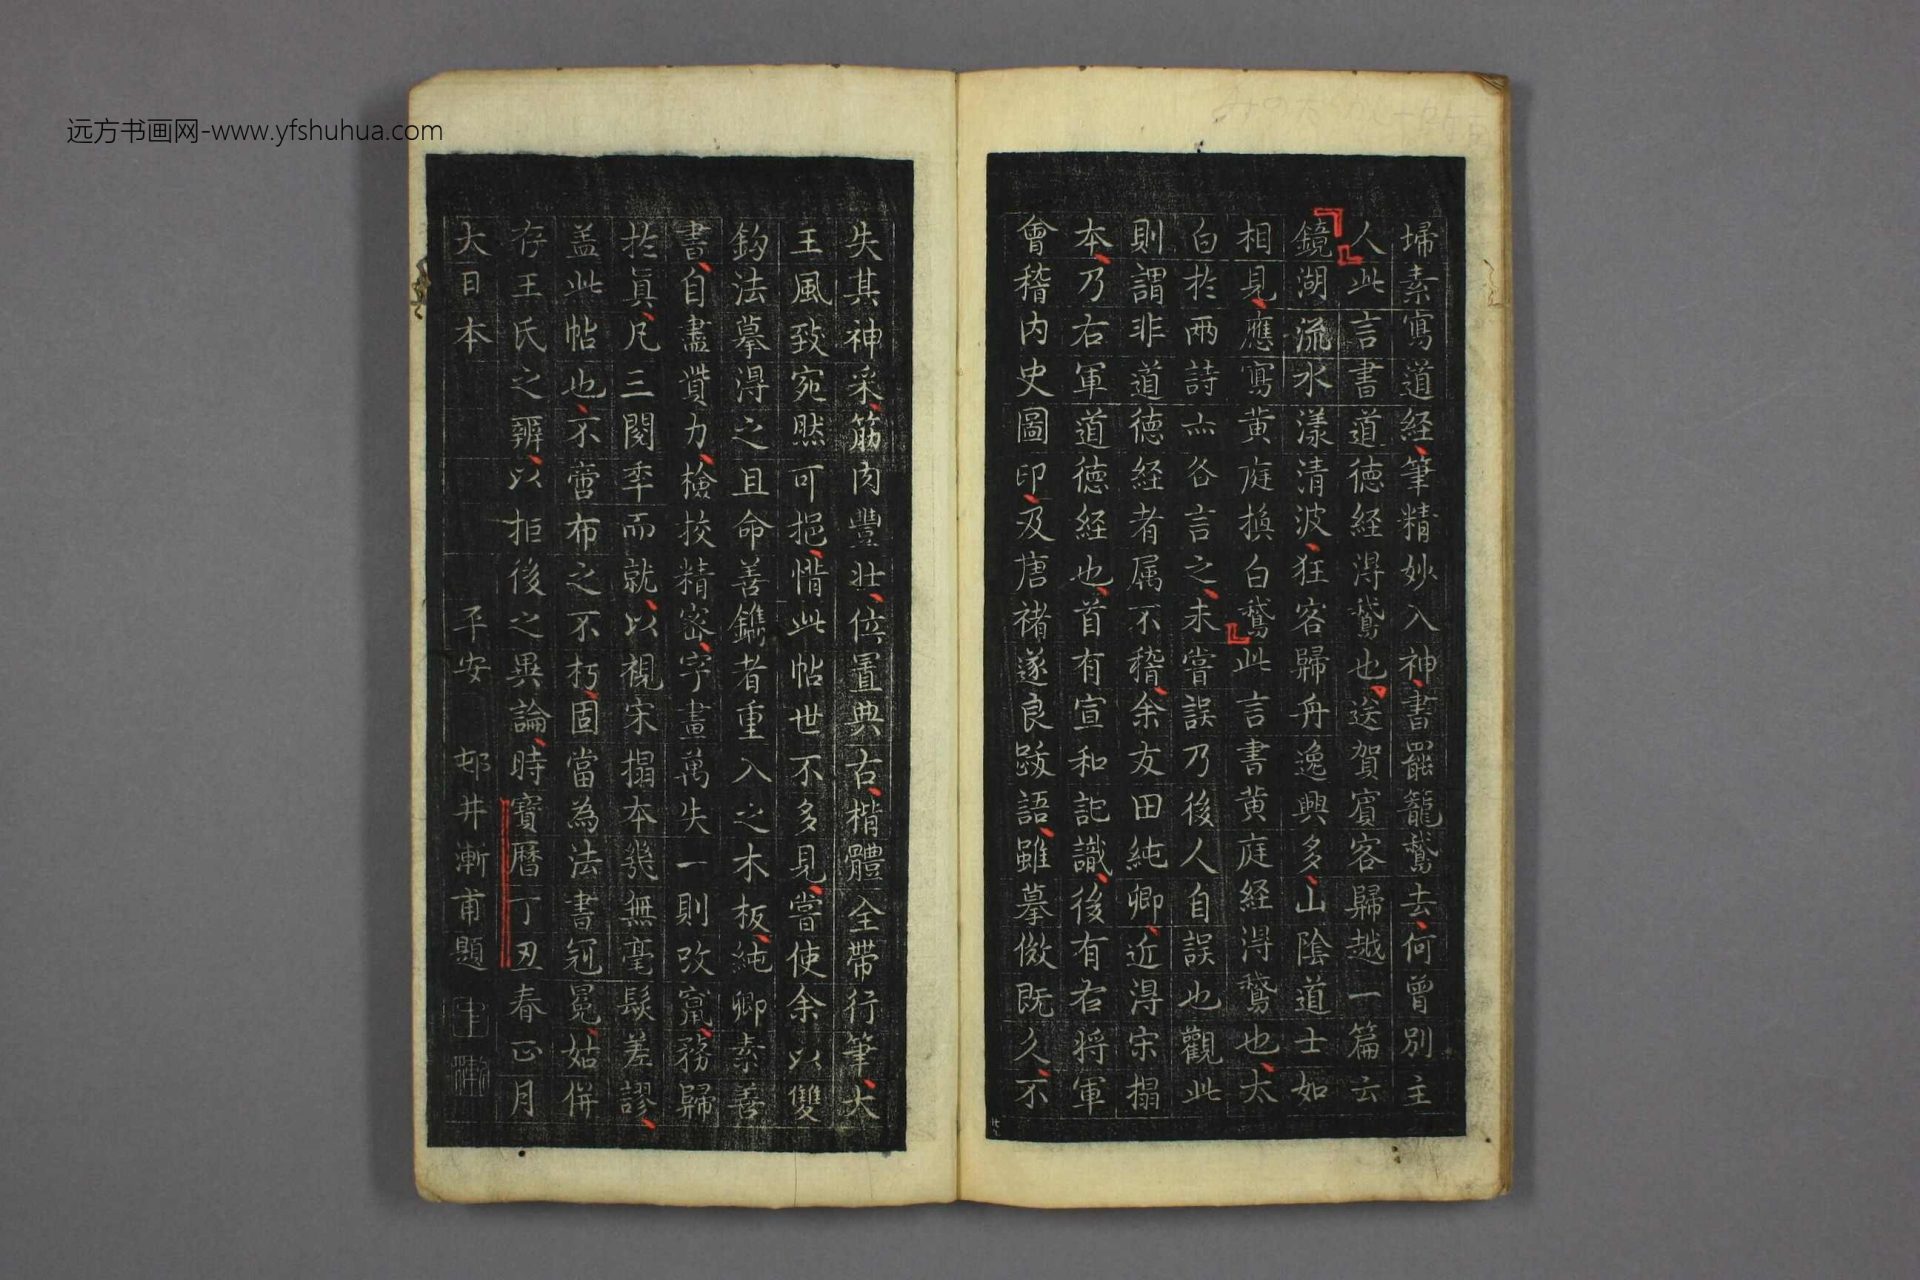 远方书画网-www.yfshuhua.com
埽素寫道経筆精妙入神書罷籠鵞去何曾別主
人此言書道德経淂鵞也送賀賔客歸越一篇云
鏡湖流水漾清波狂客歸舟逸興多山陰道士如
相見應寫黄庭換白鵞此言書黄庭経淂鵞也太
白於兩詩亦各言之未嘗誤乃後人自誤也觀此
則謂非道德経者属不稽余友田純卿近淂宋搨
本乃右軍道德経也首有宣和記識後有右将軍
會稽内史圖印及唐褚遂良跋語雖摹倣既久不
失其神采筋肉豐壮位置典古楷體全帶行筆大
王風致宛然可挹惜此帖世不多見嘗使余以雙
鈎法摹淂之且命善鐫者重入之木板純卿素善
書自盡貲力檢挍精密字畫萬失一則改竄務歸
於真凡三閲年而就以視宋搨本幾無毫髮差謬
盖此帖也不啻布之不朽固當為法書冠冕姑併
存王氏之辨以拒後之異論時寳曆丁丑春正月
大日本 平安 邨井漸甫題